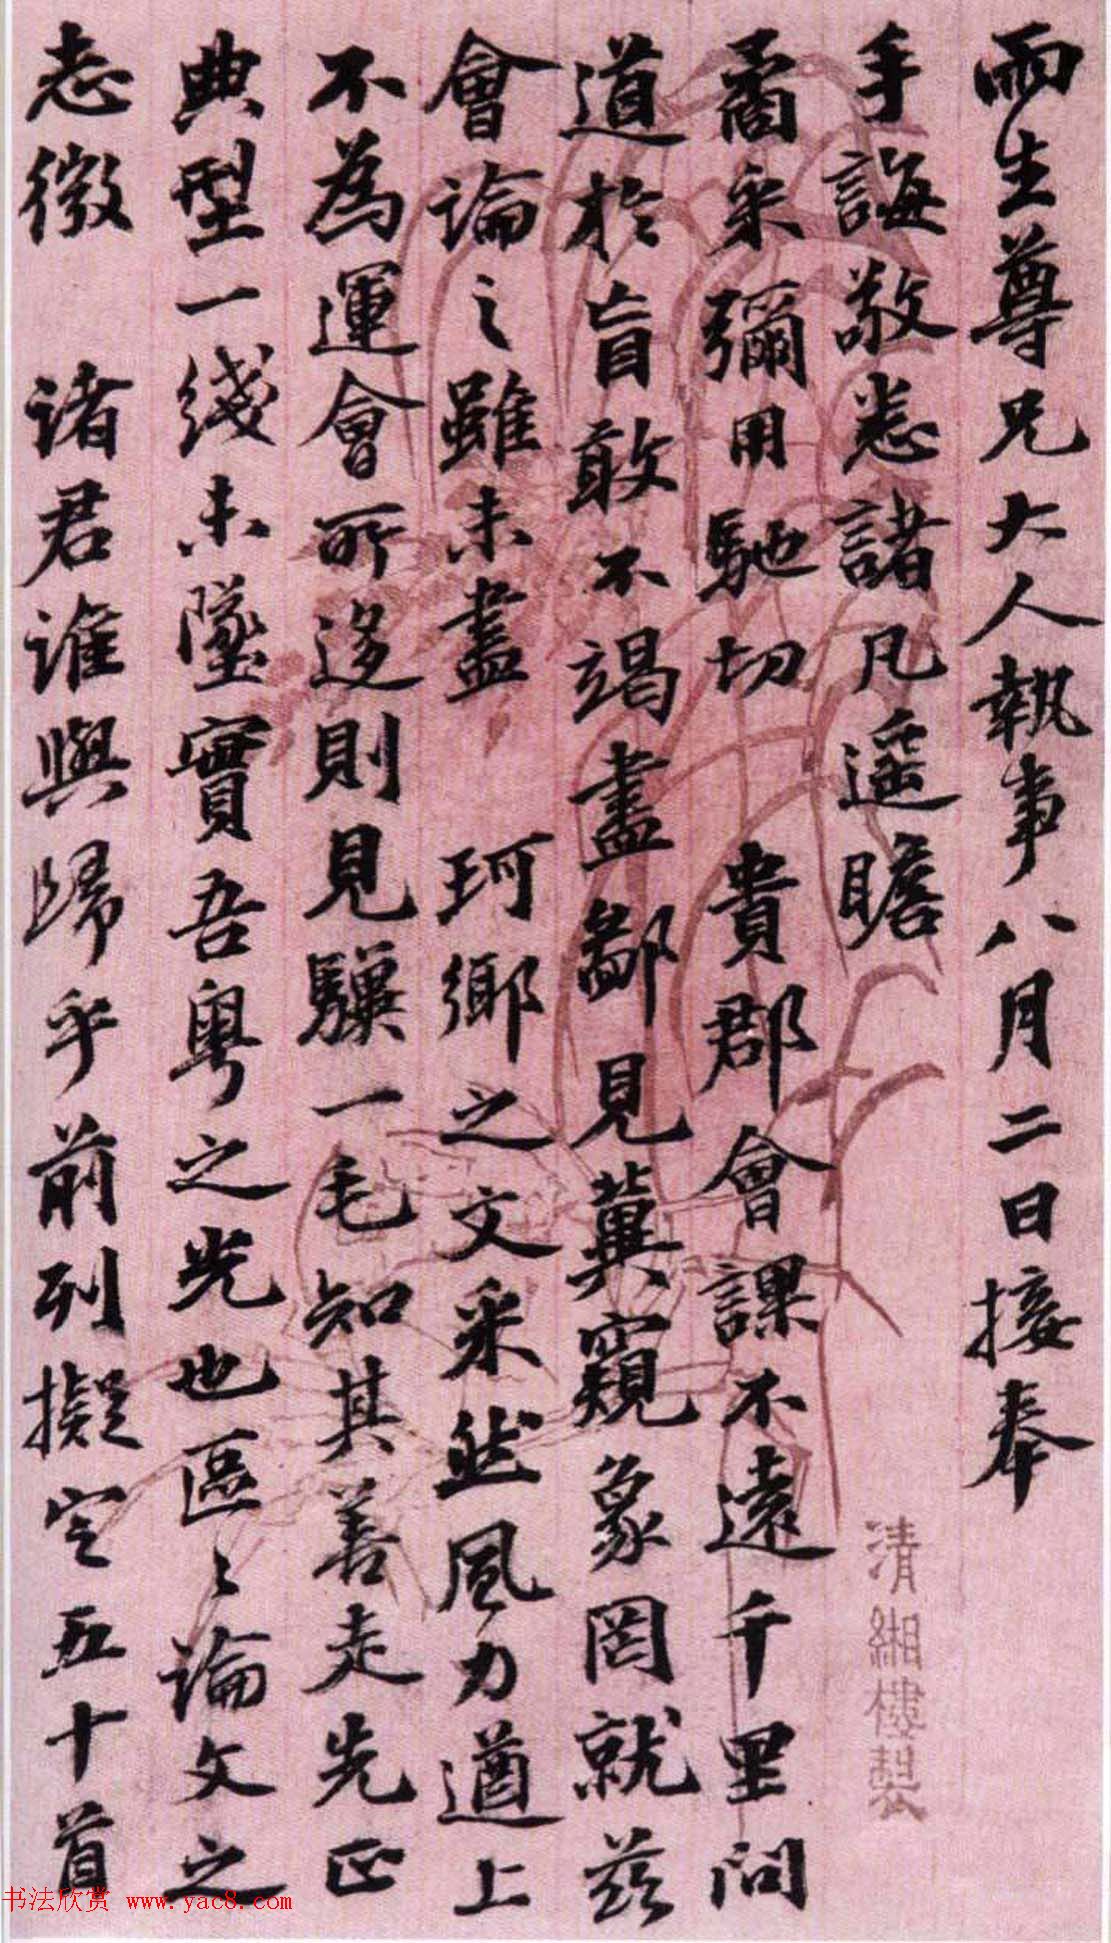 雨生尊兄大人執事八月二日接奉
手誨敬悉諸凡遥瞻
矞采彌用馳切 貴郡會課不遠千里問
道於盲敢不竭盡鄙見冀窺象罔就兹
會論之雖未盡 珂鄉之文采然風力遒上
不為運會所迻則見驥一毛知其善走先正
典型一綫未墜實吾粤之光也區〻論文之
志微 诸君谁與歸乎前列擬定五十首
清緗樓製
书法欣赏 www.yac8.com